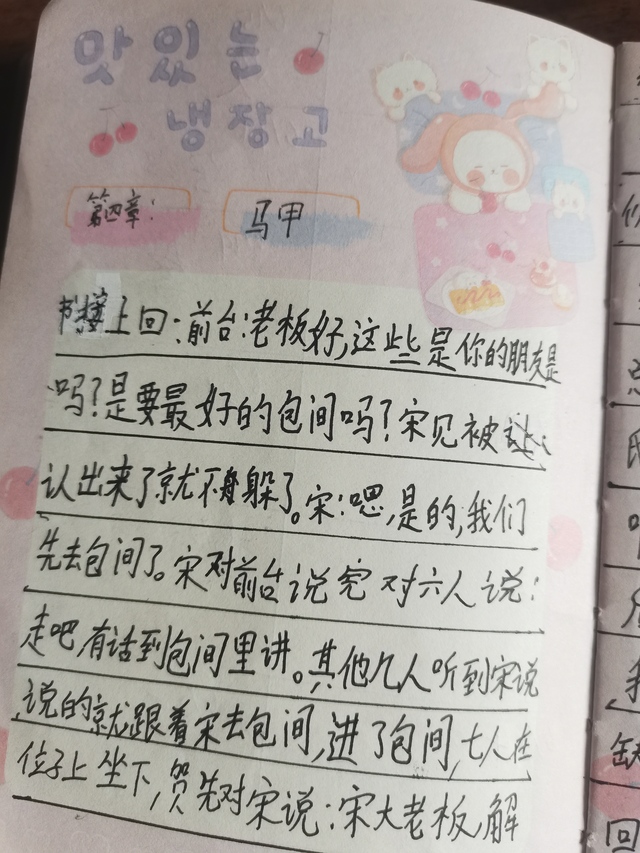 맛있는
냉장고
第四章:
马甲
书接上回:前台:老板好,这些是你的朋友是
吗?是要最好的包间吗?宋见被
认出来了就不躲了。宋:嗯,是的,我们
先去包间了。宋对前台说完对六人说:
走吧有话到包间里讲。其他几人听到宋说
说的就跟着宋去包间,进了包间,七人在
位子上坐下,贺先对宋说:宋大老板,解